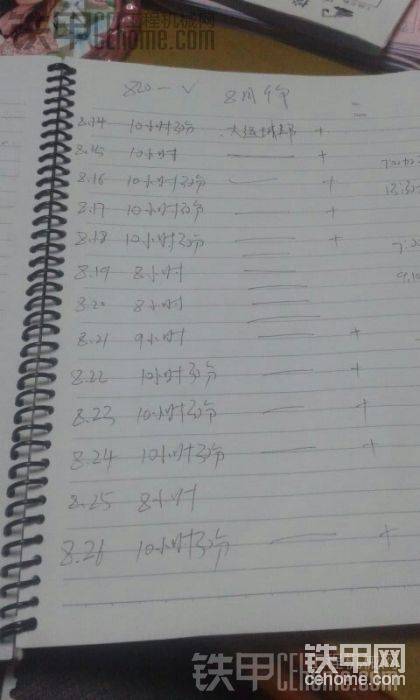 铁甲工程机械网
CEhome.com
820一 8月份
8.14 10小时30分 +
8.15 10小时 — +
8.16 10小时30分 — +
8.17 10小时30分 — +
8.18 10小时30分 — +
8.19 8小时 —
8.20 8小时 —
8.21 9小时 — +
8.22 10小时30分 — +
8.23 10小时30分 — +
8.24 10小时30分 — +
8.25 8小时
8.26 10小时30分 — +
铁甲网
cehome.com